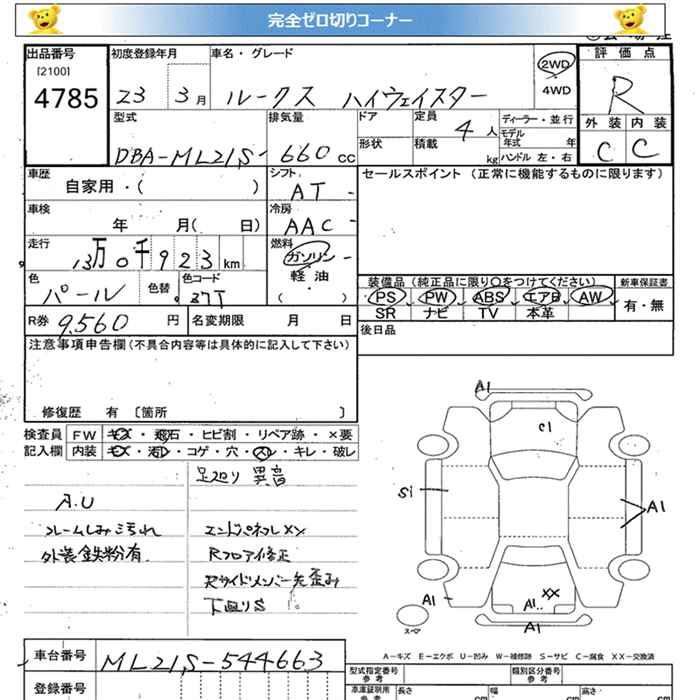 完全ゼロ切りコーナー
出品番号
[2100]
4785
初度登録年月
23 3月
車名・グレード
ルークス ハイウェイスター
2WD
4WD
評価点
R
外装 内装
C C
型式
DBA-ML21S-
排気量
660 cc
ドア
形状
定員
4 人
積載
kg
ディーラー・並行
モデル年式 年
ハンドル 左・右
車歴
自家用・( )
シフト
AT -
セールスポイント (正常に機能するものに限ります)
車検
年 月( 日)
冷房
AAC -
走行
13万0千923km
燃料
ガソリン
軽油
・
( )
色
パール
色替
色コード
37T
装備品 (純正品に限り○をつけてください)
PS PW ABS エアB AW
SR ナビ TV 本革
新車保証書
有・無
R券 9,560 円
名変期限 月 日
後日品
注意事項申告欄(不具合内容等は具体的に記入して下さい)
修復歴 有 〔箇所 〕
検査員 FW キズ・飛石・ヒビ割・リペア跡・×要
記入欄 内装 キズ・汚レ・コゲ・穴・スレ・キレ・破レ
足廻り異音
A.U
フレームしみ汚れ
外装鉄粉有
エンドパネルXX
Rフロア修正
Rサイドメンバー先歪み
下廻りS
A1
C1
Si
A1
A1
A1..
XX
A1
スペア
A-キズ E-エクボ U-凹み W-補修跡 S-サビ C-腐食 XX-交換済
車台番号
ML21S-544663
登録番号
型式指定番号
参考
類別区分番号
参考
車庫証明用
参考
長さ cm
幅 cm
高さ cm